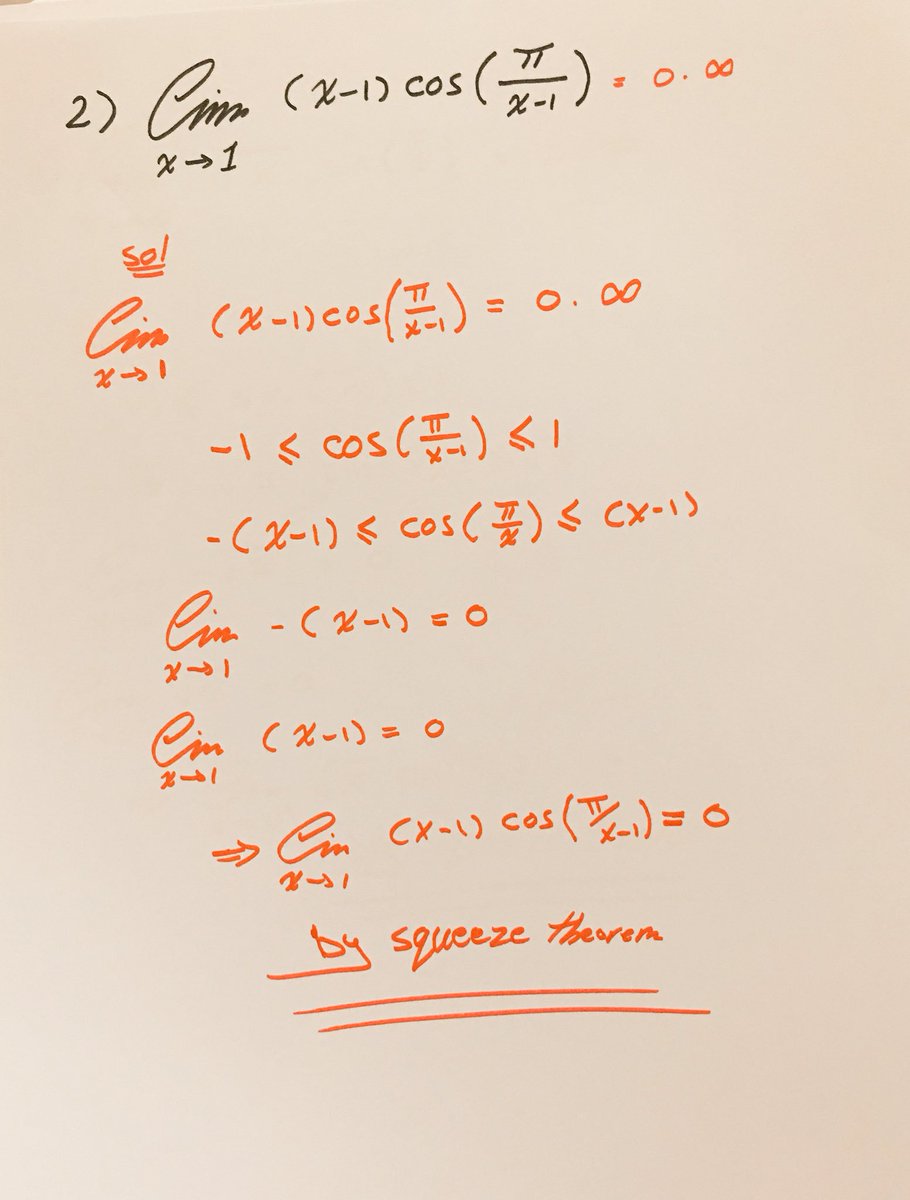 2) Lim (x-1) cos(π/(x-1)) = 0. ∞
x→1
sol
Lim (x-1)cos(π/(x-1)) = 0. ∞
x→1
-1 ≤ cos(π/(x-1)) ≤ 1
-(x-1) ≤ cos(π/x) ≤ (x-1)
Lim -(x-1) = 0
x→1
Lim (x-1) = 0
x→1
⇒ Lim (x-1) cos(π/x-1) = 0
x→1
by squeeze theorem